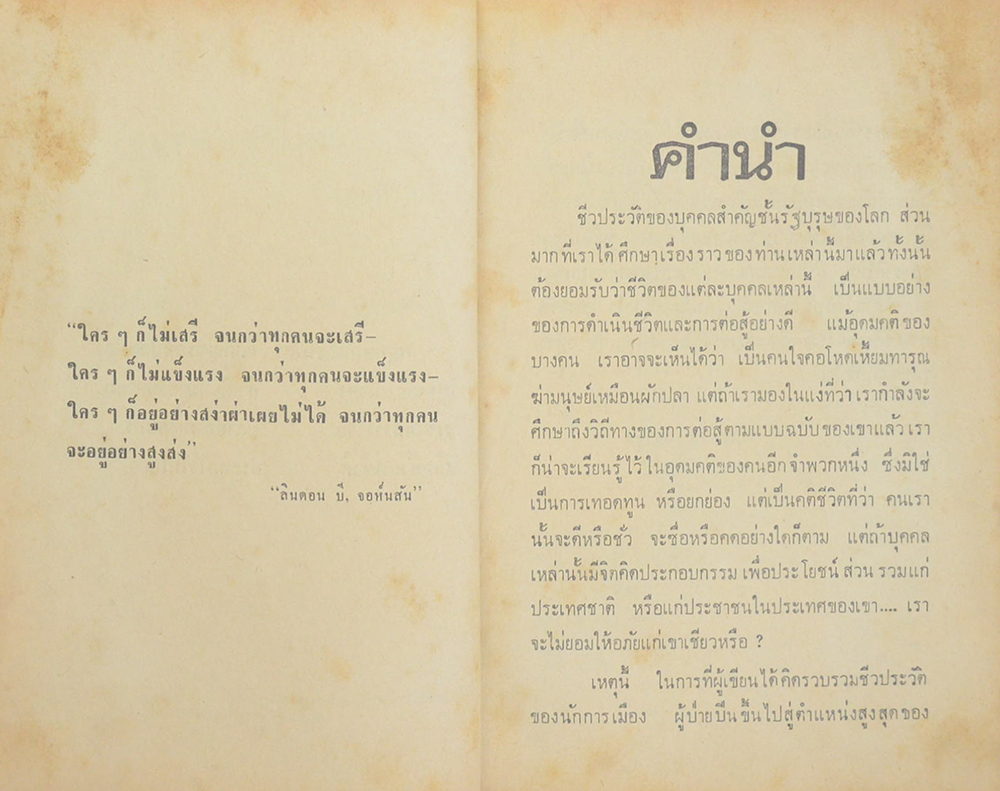 “ใคร ๆ ก็ไม่เสรี จนกว่าทุกคนจะเสรี–
ใคร ๆ ก็ไม่แข็งแรง จนกว่าทุกคนจะแข็งแรง–
ใคร ๆ ก็อยู่อย่างสง่าผ่าเผยไม่ได้ จนกว่าทุกคน
จะอยู่อย่างสูงส่ง”
“ลินดอน บี. จอห์นสัน”
คำนำ
ชีวประวัติของบุคคลสำคัญชั้นรัฐบุรุษของโลก ส่วน
มากที่เราได้ศึกษาเรื่องราวของท่านเหล่านี้มาแล้วทั้งนั้น
ต้องยอมรับว่าชีวิตของแต่ละบุคคลเหล่านี้ เป็นแบบอย่าง
ของการดำเนินชีวิตและการต่อสู้อย่างดี แม้อุดมคติของ
บางคน เราอาจจะเห็นได้ว่า เป็นคนใจคอโหดเหี้ยมทารุณ
ฆ่ามนุษย์เหมือนผักปลา แต่ถ้าเรามองในแง่ที่ว่า เรากำลังจะ
ศึกษาถึงวิถีทางของการต่อสู้ตามแบบฉบับของเขาแล้ว เรา
ก็น่าจะเรียนรู้ไว้ในอุดมคติของคนอีกจำพวกหนึ่ง ซึ่งมิใช่
เป็นการเทอดทูน หรือยกย่อง แต่เป็นคติชีวิตที่ว่า คนเรา
นั้นจะดีหรือชั่ว จะซื่อหรือคดอย่างใดก็ตาม แต่ถ้าบุคคล
เหล่านั้นมีจิตคิดประกอบกรรม เพื่อประโยชน์ส่วนรวมแก่
ประเทศชาติ หรือแก่ประชาชนในประเทศของเขา.... เรา
จะไม่ยอมให้อภัยแก่เขาเชียวหรือ ?
เหตุนี้ ในการที่ผู้เขียนได้คิดรวบรวมชีวประวัติ
ของนักการเมือง ผู้ป่ายปีนขึ้นไปสู่ตำแหน่งสูงสุดของ